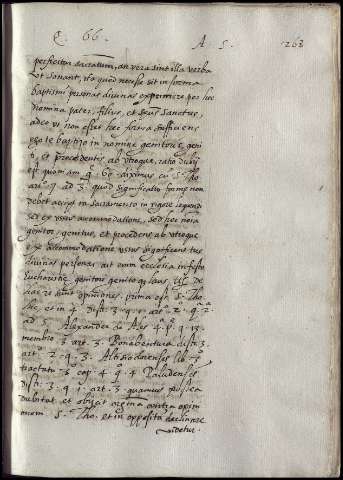 Q. 66. A. 5. 263
perficitur sacramentum, an vera sint illa verba
et sonant, ita quod necesse sit in forma
baptismi personas divinas exprimere per hec
nomina pater, filius, et spus sanctus,
adeo ut non esset hec forma sufficiens
ego te baptizo in nomine genitoris, geniti
, et procedentis ab utroque, ratio dubii
est quoniam q. 60 diximus cum S. Tho
ad 3. quod significatio forme non
debet accipi in sacramento in rigore
sed ex usus accommodatione, sed hec noia
genitor, genitus, et procedens ab utroque
ex accommodatione usus significant tres
divinas personas, ait enim ecclesia in festo
Eucharistie, genitori genitoque laus
re sunt opiniones. prima est S. Tho
hic, et in 4 dist. 3. q. 1. art. 2. q. 2.
ad 3. Alexander de Ales 4. p. q. 13.
membro 3. art. 3. Bonaventura dist. 3.
art. 2. q. 3. Altisiodorensis lib. 4.
tractatu 3. cap. 4. q. 4 Paludensis
dist. 3. q. 1. art. 3. quamvis postea
dubitat et obiicit contra opinionem
S. Tho. et in oppositam declinare
videtur.